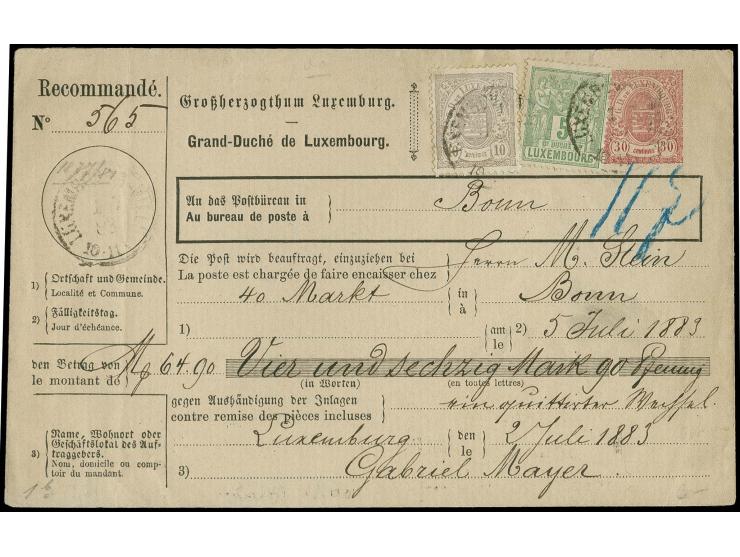 Recommandé.
Nº 565
Großherzogthum Luxemburg.
Grand-Duché de Luxembourg.
10
CENTIMES
5
Gᴰ DUCHÉ DE
LUXEMBOURG
30 CENTIMES 30
An das Postbüreau in
Au bureau de poste à
Bonn
Die Post wird beauftragt, einzuziehen bei
La poste est chargée de faire encaisser chez
Herrn M. Stein
40 Markt
in
à
Bonn
1) Ortschaft und Gemeinde.
Localité et Commune.
2) Fälligkeitstag.
Jour d'échéance.
1)
am
le
2) 5 Juli 1883
den Betrag von
le montant de
M 64.90 Vier und sechzig Mark 90 Pfennig
(in Worten) (en toutes lettres)
gegen Aushändigung der Inlagen
contre remise des pièces incluses
ein quittirter Wechsel.
Luxemburg
den
le
2 Juli 1883
3) Name, Wohnort oder
Geschäftslokal des Auf-
traggebers.
Nom, domicile ou comp-
toir du mandant.
3) Gabriel Mayer.